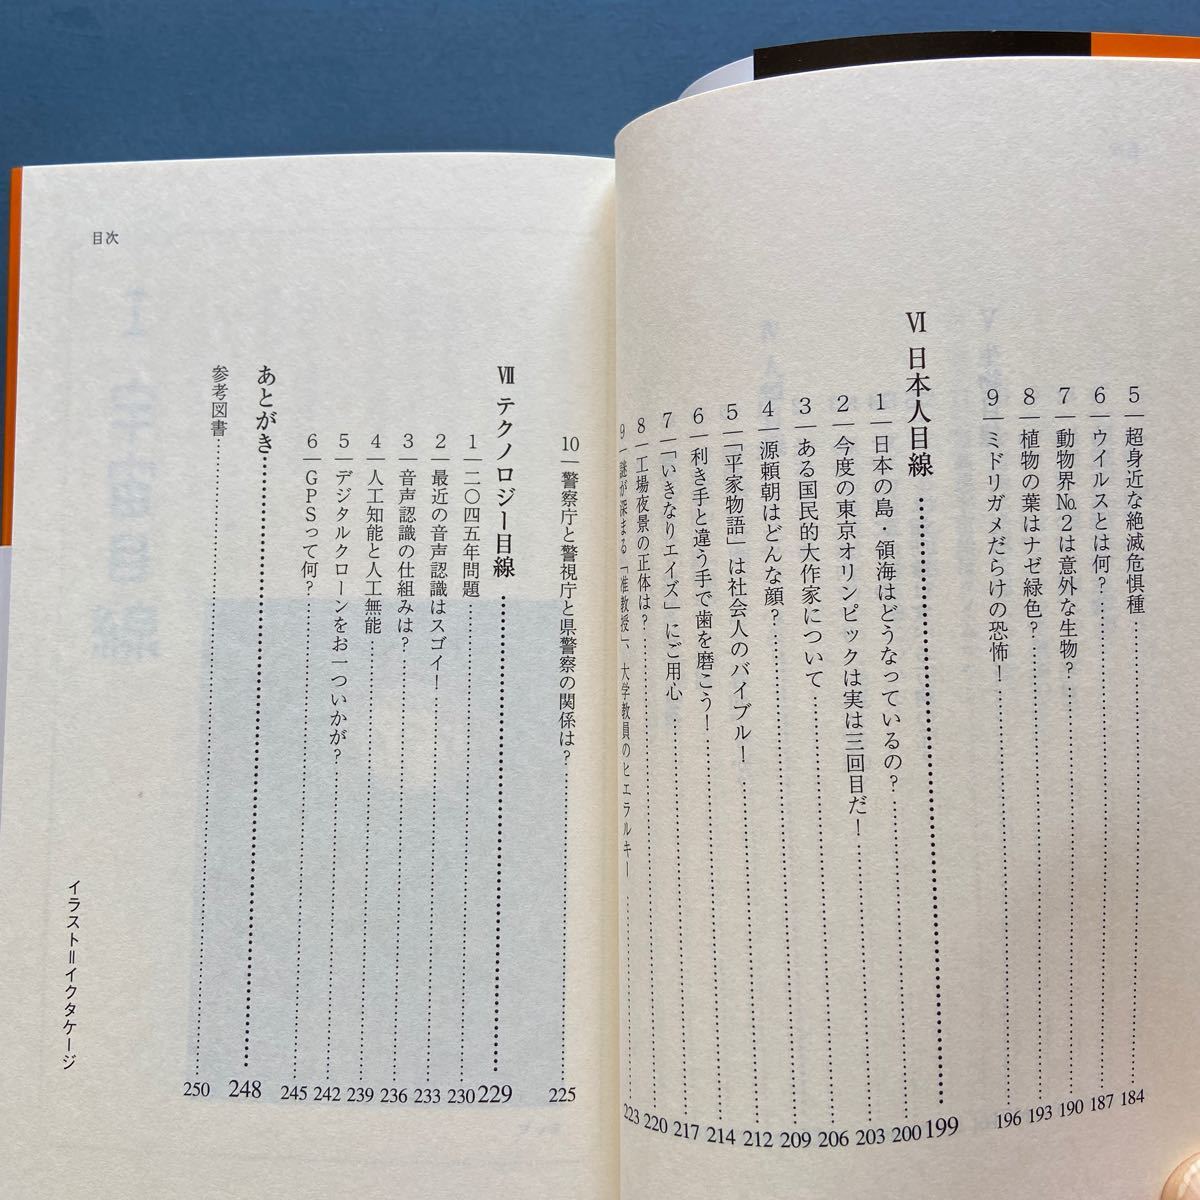 5 超身近な絶滅危惧種 184
6 ウイルスとは何? 187
7 動物界No.2は意外な生物? 190
8 植物の葉はナゼ緑色? 193
9 ミドリガメだらけの恐怖! 196
Ⅵ 日本人目線 199
1 日本の島・領海はどうなっているの? 200
2 今度の東京オリンピックは実は三回目だ! 203
3 ある国民的大作家について 206
4 源頼朝はどんな顔? 209
5 「平家物語」は社会人のバイブル! 212
6 利き手と違う手で歯を磨こう! 214
7 「いきなりエイズ」にご用心 217
8 工場夜景の正体は? 220
9 謎が深まる「准教授」、大学教員のヒエラルキー 223
目次
10 警察庁と警視庁と県警察の関係は? 225
Ⅶ テクノロジー目線 229
1 二〇四五年問題 230
2 最近の音声認識はスゴイ! 233
3 音声認識の仕組みは? 236
4 人工知能と人工無能 239
5 デジタルクローンをお一ついかが? 242
6 GPSって何? 245
あとがき 248
参考図書 250
イラスト=イクタケージ